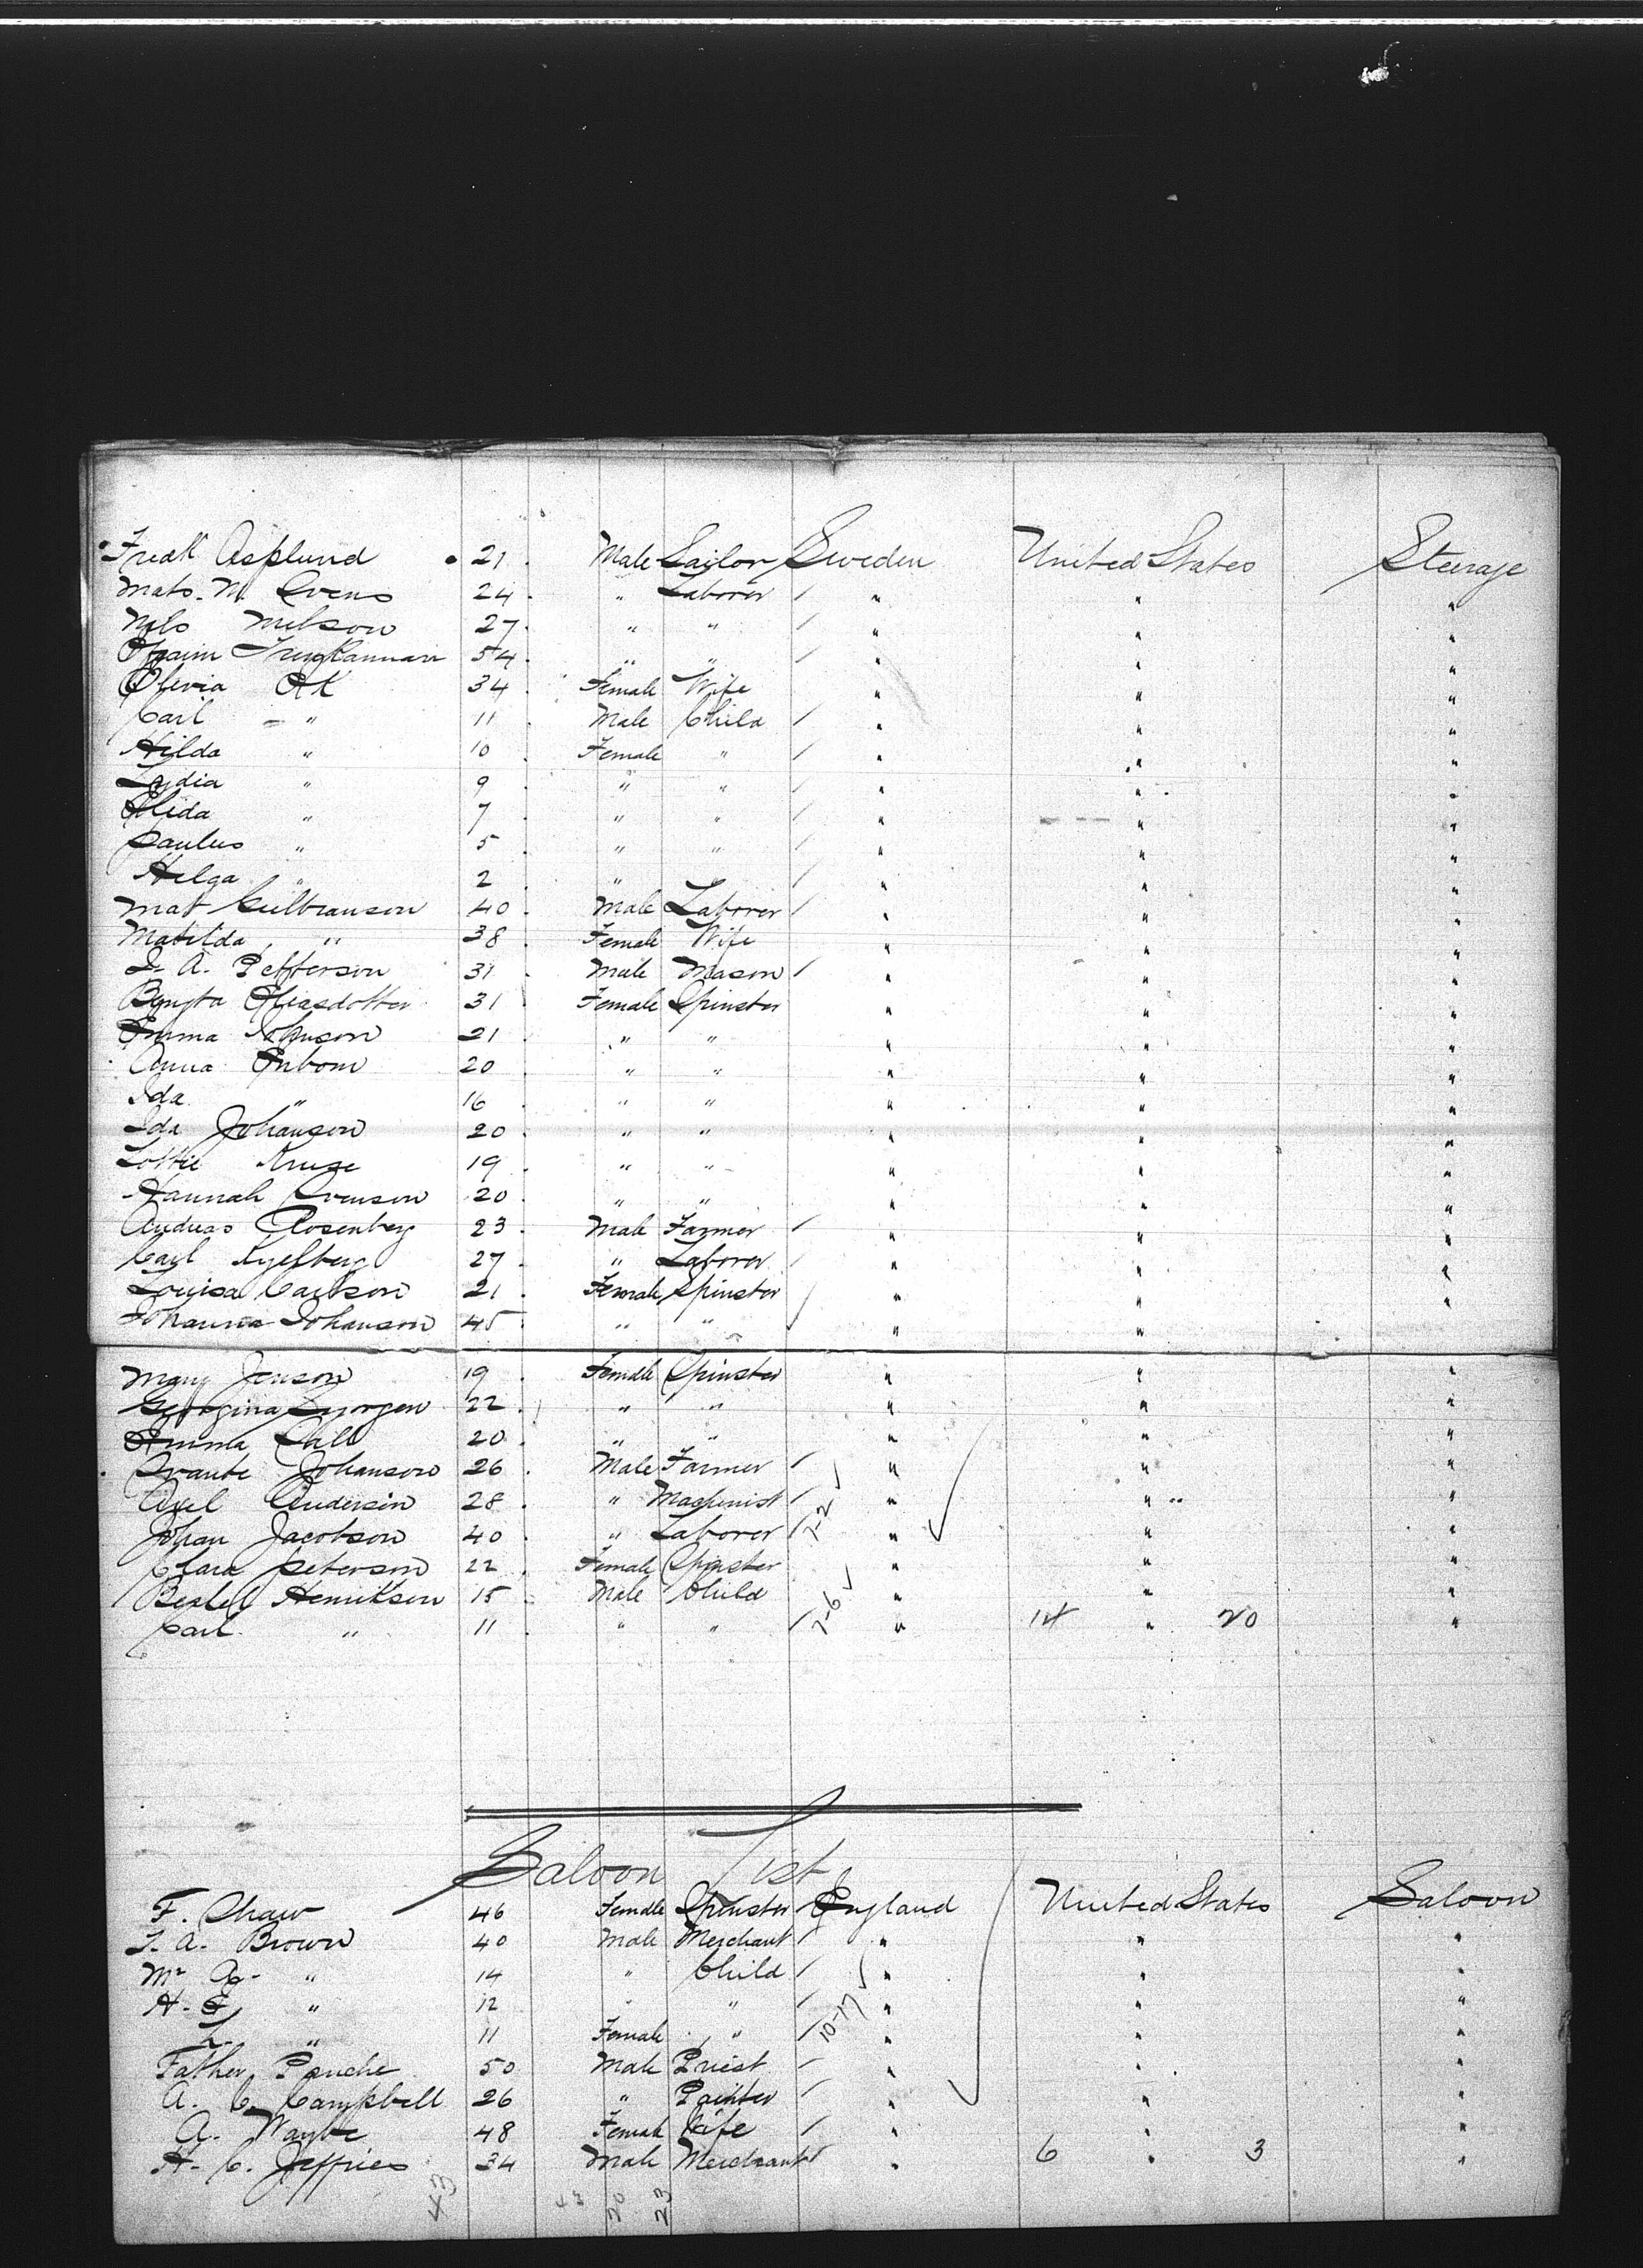 Fredk Asplund 21 Male Sailor Sweden United States Steerage
Mats. M. Evens 24 " Laborer " " "
Nels Nelson 27 " " " " "
Efraim 54 " " " " "
Olivia Ek 34 Female Wife " " "
Carl " 11 Male Child " " "
Hilda " 10 Female " " " "
Lydia " 9 " " " " "
Elida " 7 " " " " "
Paulus " 5 " " " " "
Helga " 2 " " " " "
Mat Gulbranson 40 Male Laborer " " "
Matilda " 38 Female Wife " " "
A. Pefferson 31 Male Mason " " "
Bengta Eliasdotter 31 Female Spinster " " "
Emma Johnson 21 " " " " "
Anna Enbom 20 " " " " "
Ida " 16 " " " " "
Ida Johanson 20 " " " " "
Lottie Kruse 19 " " " " "
Hannah Svenson 20 " " " " "
Andreas Rosenberg 23 Male Farmer " " "
Carl 27 " Laborer " " "
Louisa Carlson 21 Female Spinster " " "
Johanna Johanson 45 " " " " "
Mary Jenson 19 Female Spinster " " "
Georgina 22 " " " " "
Emma 20 " " " " "
Svante Johanson 26 Male Farmer " " "
Axel Anderson 28 " Machinist " " "
Johan Jacobson 40 " Laborer 7-2 " " "
Clara Peterson 22 Female Spinster " " "
Bertel Henrikson 15 Male Child " " "
Carl " 11 " " 7-6 " 14 " 20 "
Saloon List
F. Shaw 46 Female Spinster England United States Saloon
T. A. Brown 40 Male Merchant " " "
Mr A. " 14 " Child " " "
H. E. " 12 " " " " "
L. " 11 Female " 10-17 " " "
Father Ponche 50 Male Priest " " "
A. C. Campbell 26 " Painter " " "
A. 48 Female Wife " " "
H. C. Jeffries 34 Male Merchant " 6 " 3 "
43 43 20 23